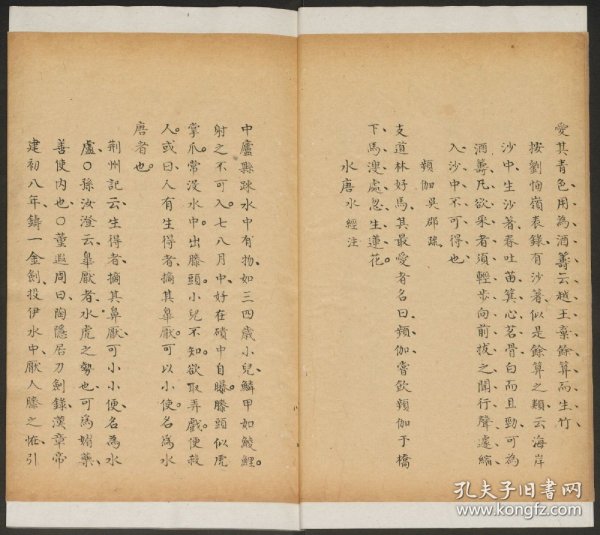 愛其青色用為酒籌云越王棄餘算而生竹
按劉恂嶺表錄有沙箸似是餘算之類云海岸
沙中生沙箸春吐苗其心若骨白而且勁可為
酒籌凡欲采者須輕步向前拔之聞行聲遽縮
入沙中不可得也
頻伽吳郡疏
支道林好馬其最愛者名曰頻伽嘗飲頻伽于橋
下馬溲處忽生蓮花
水唐水經注
中廬縣疎水中有物如三四歲小兒鱗甲如鯪鯉
射之不可入七八月中好在磧中自曝膝頭似虎
掌爪常沒水中出膝頭小兒不知欲取弄戲便殺
人或曰人有生得者摘其鼻厭可以小使名為水
唐者也
荆州記云生得者摘其鼻厭可小小使名為水
盧〇孫汝澄云皐厭者水虎之勢也可為媚藥
善使內也〇董遐周曰陶隱居刀劍錄漢章帝
建初八年鑄一金劍投伊水中厭人膝之怪引
孔夫子旧书网
www.kongfz.com